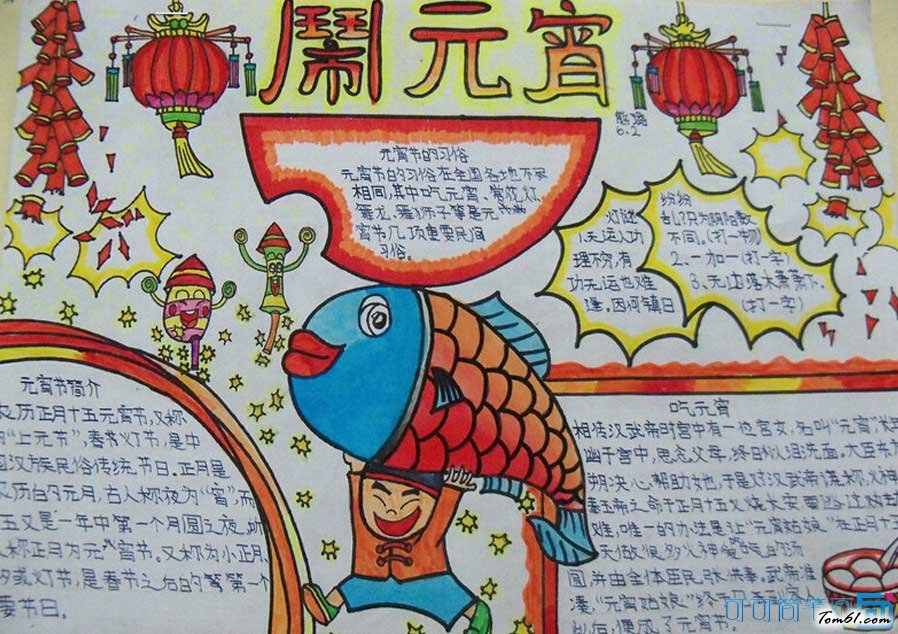 鬧元宵
熊璐
6.2
元宵节的习俗
元宵节的习俗在全国各地不尽
相同,其中吃元宵、赏花灯、
舞龙、舞狮子等是元
宵节几项重要民间
习俗。
灯谜
1.天运人功
理不穷,有
功无运也难
逢。因何镇日
纷纷
乱?只为阴阳数
不同。(打一物)
2.一加一(打一字)
3.无边落木萧萧下.
(打一字)
元宵节简介
农历正月十五元宵节,又称
"上元节",春节灯节,是中
国汉族民俗传统节日.正月是
农历的元月,古人称夜为"宵",而
五又是一年中第一个月圆之夜,所
又称正月为元宵节。又称为小正月、
夕或灯节,是春节之后的第一个
要节日。
吃元宵
相传汉武帝时宫中有一位宫女,名叫"元宵",
幽于宫中,思念父母,终日以泪洗面。大臣东方
朔决心帮助她,于是对汉武帝谎称,火神
奉玉帝之命于正月十五火烧长安,要逃
难,唯一的办法是让"元宵姑娘"在正月十五
天
圆,并由全体臣民张灯
凑,"元宵姑娘"终
此后,便成了元宵节。
Tom61.com